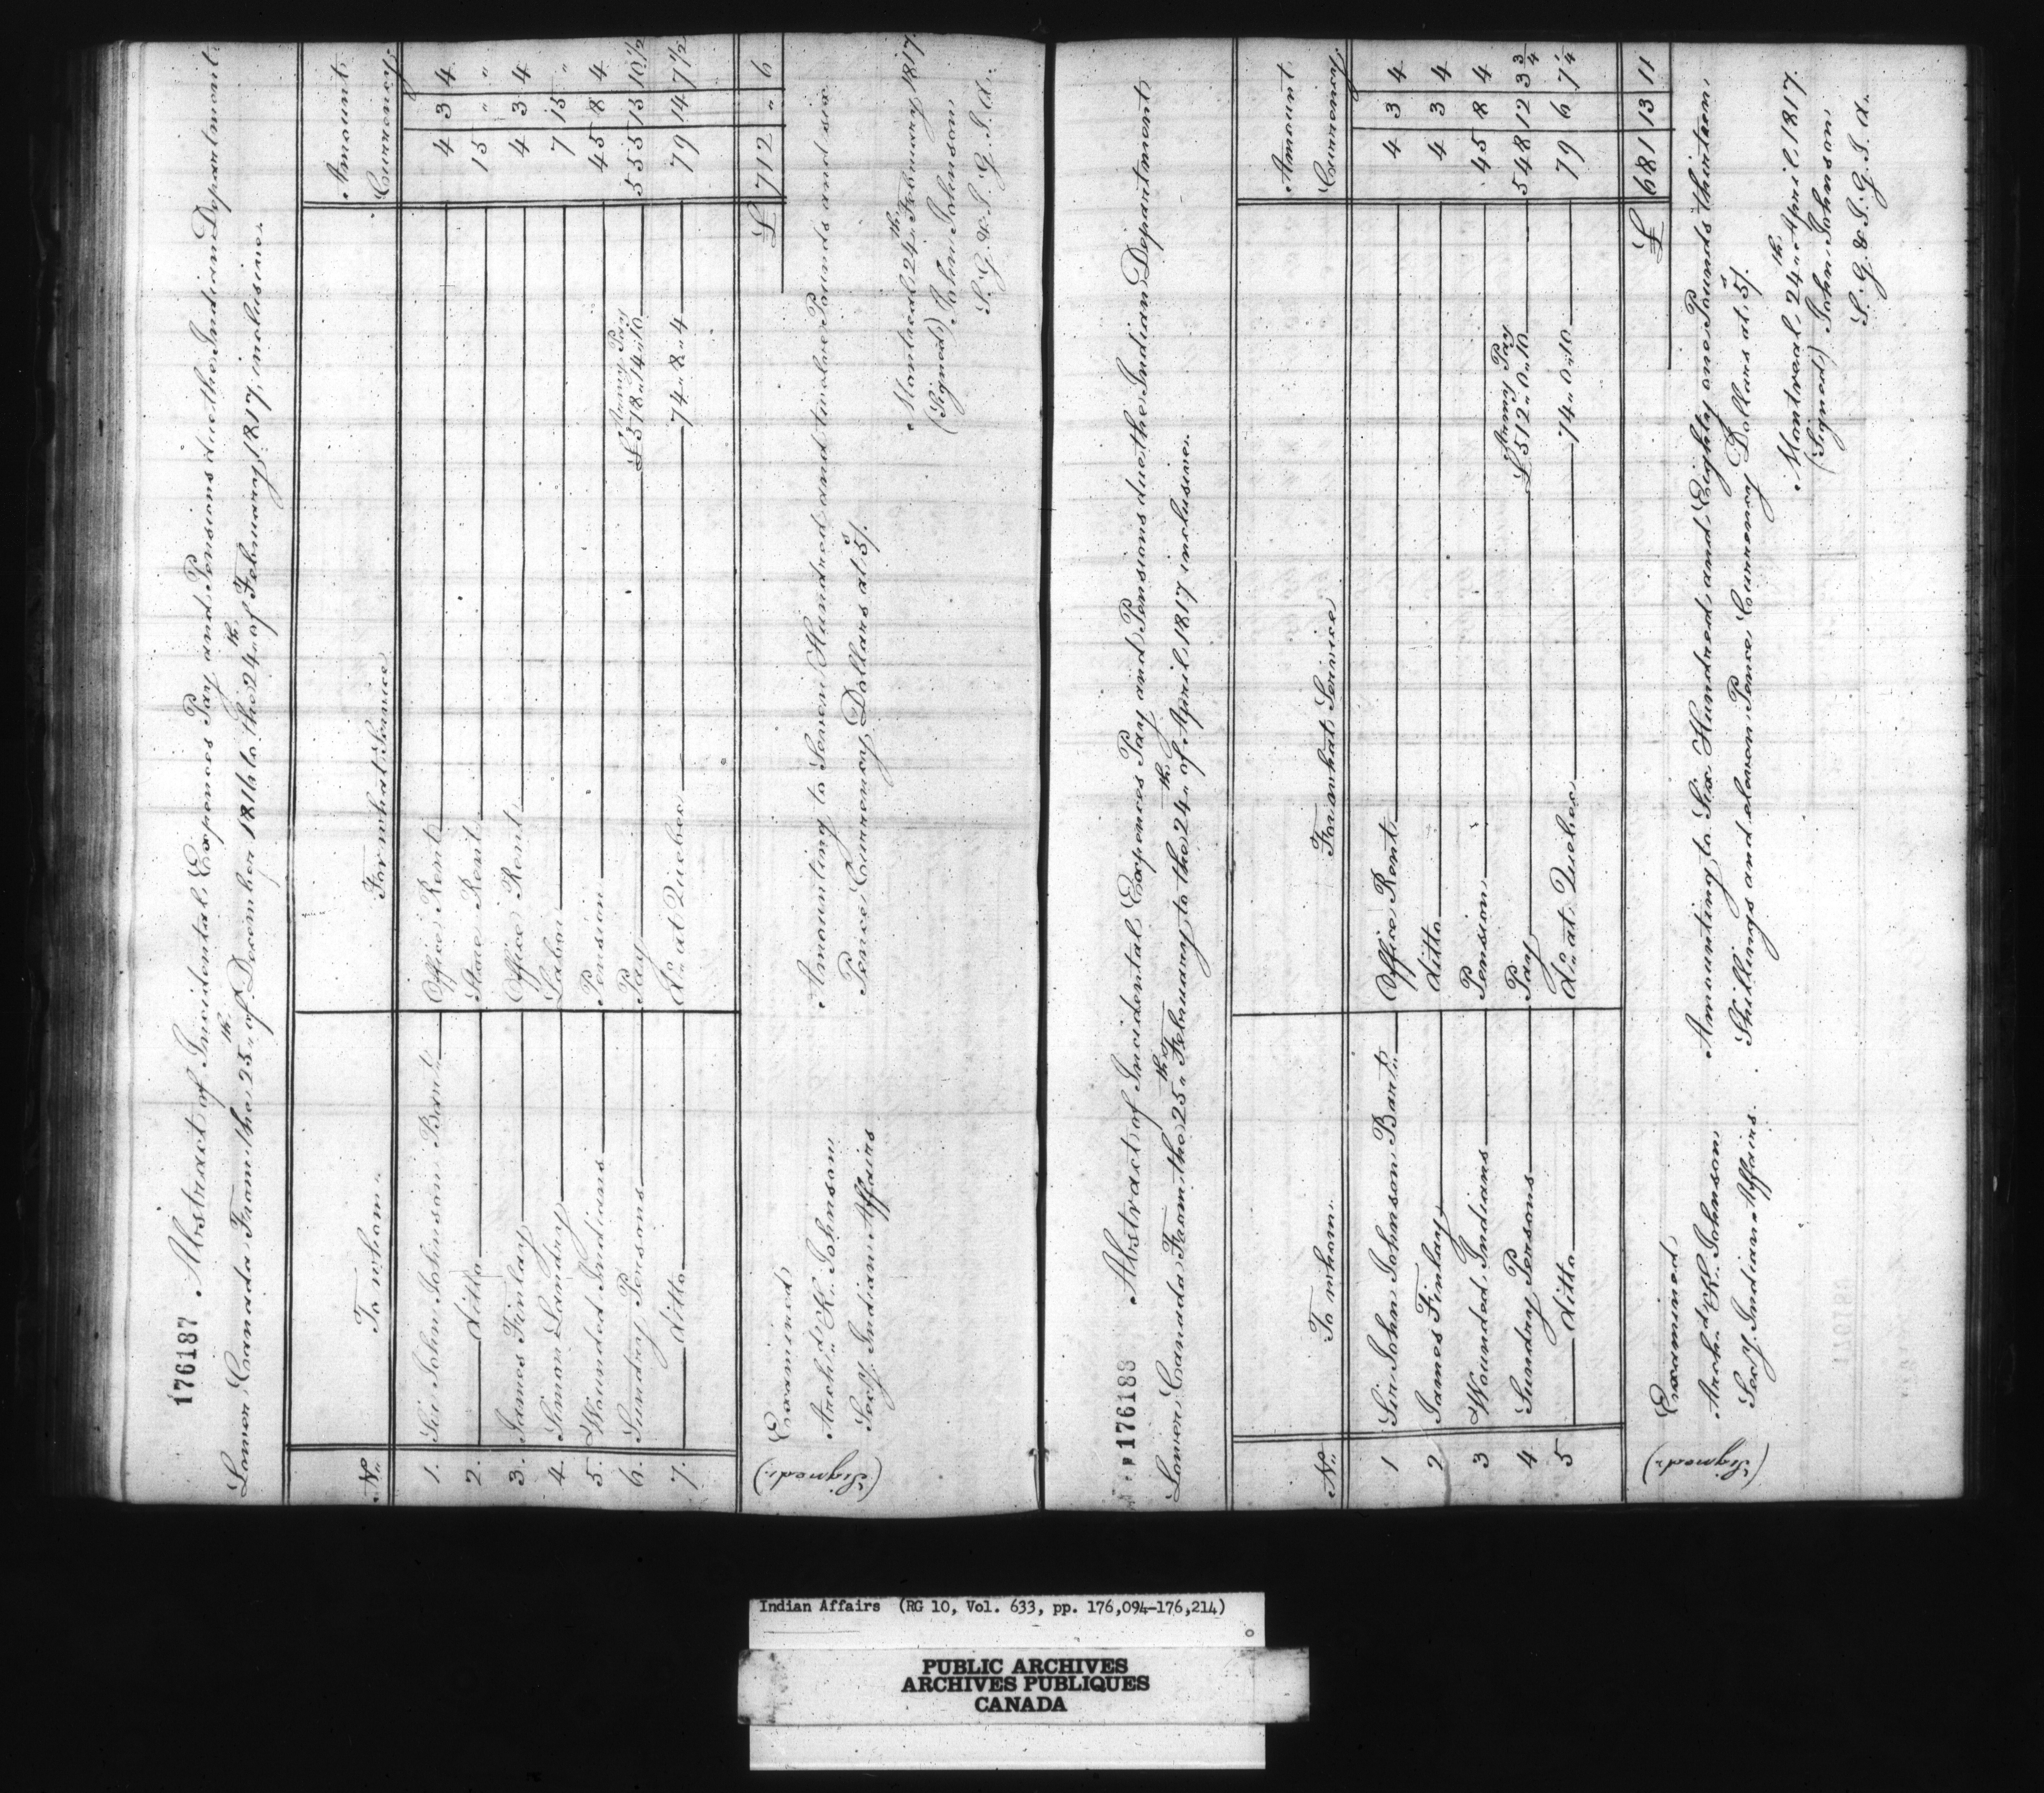 176187 Abstract of Incidental Expences Pay and Pensions due the Indian Department
Lower Canada From the 25th of December 1816 to the 24th of February 1817, inclusive.
No. To whom. For what Service Amount Currency
1. Sir John Johnson Bart. Office Rent 4 3 4
2. ditto Store Rent 15 " "
3. James Finlay Office Rent 4 3 4
4. Simon Landry Labor 7 15 "
5. Wounded Indians Pension 45 8 4
6. Sundry Persons Pay Army Pay £518"14"10 555 15 10 1/2
7. ditto do. at Quebec 74"8"4 79 14 7 1/2
£ 712 " 6
Examined
(Signed) Archd. K. Johnson
Secy. Indian Affairs
Amounting to Seven Hundred and twelve Pounds and six
Pence Currency Dollars at 5/.
Montreal 24th February 1817.
(Signed) John Johnson
S. G. & I. G. I. A.
176188 Abstract of Incidental Expences Pay and Pensions due the Indian Department
Lower Canada From the 25th February to the 24th of April 1817 inclusive.
No. To whom For what Service Amount Currency
1 Sir John Johnson Bart. Office Rent 4 3 4
2 James Finlay ditto 4 3 4
3 Wounded Indians Pension 45 8 4
4 Sundry Persons Pay Army Pay £512"0"10 548 12 3 3/4
5 ditto do. at Quebec 74"0"10 79 6 7 1/4
£ 681 13 11
Examined
(Signed) Archd. K. Johnson
Secy. Indian Affairs.
Amounting to Six Hundred and Eighty one Pounds thirteen
Shillings and eleven Pence Currency Dollars at 5/.
Montreal 24th April 1817.
(Signed) John Johnson
S. G. & I. G. I. A.
Indian Affairs (RG 10, Vol. 633, pp. 176,094-176,214)
PUBLIC ARCHIVES
ARCHIVES PUBLIQUES
CANADA